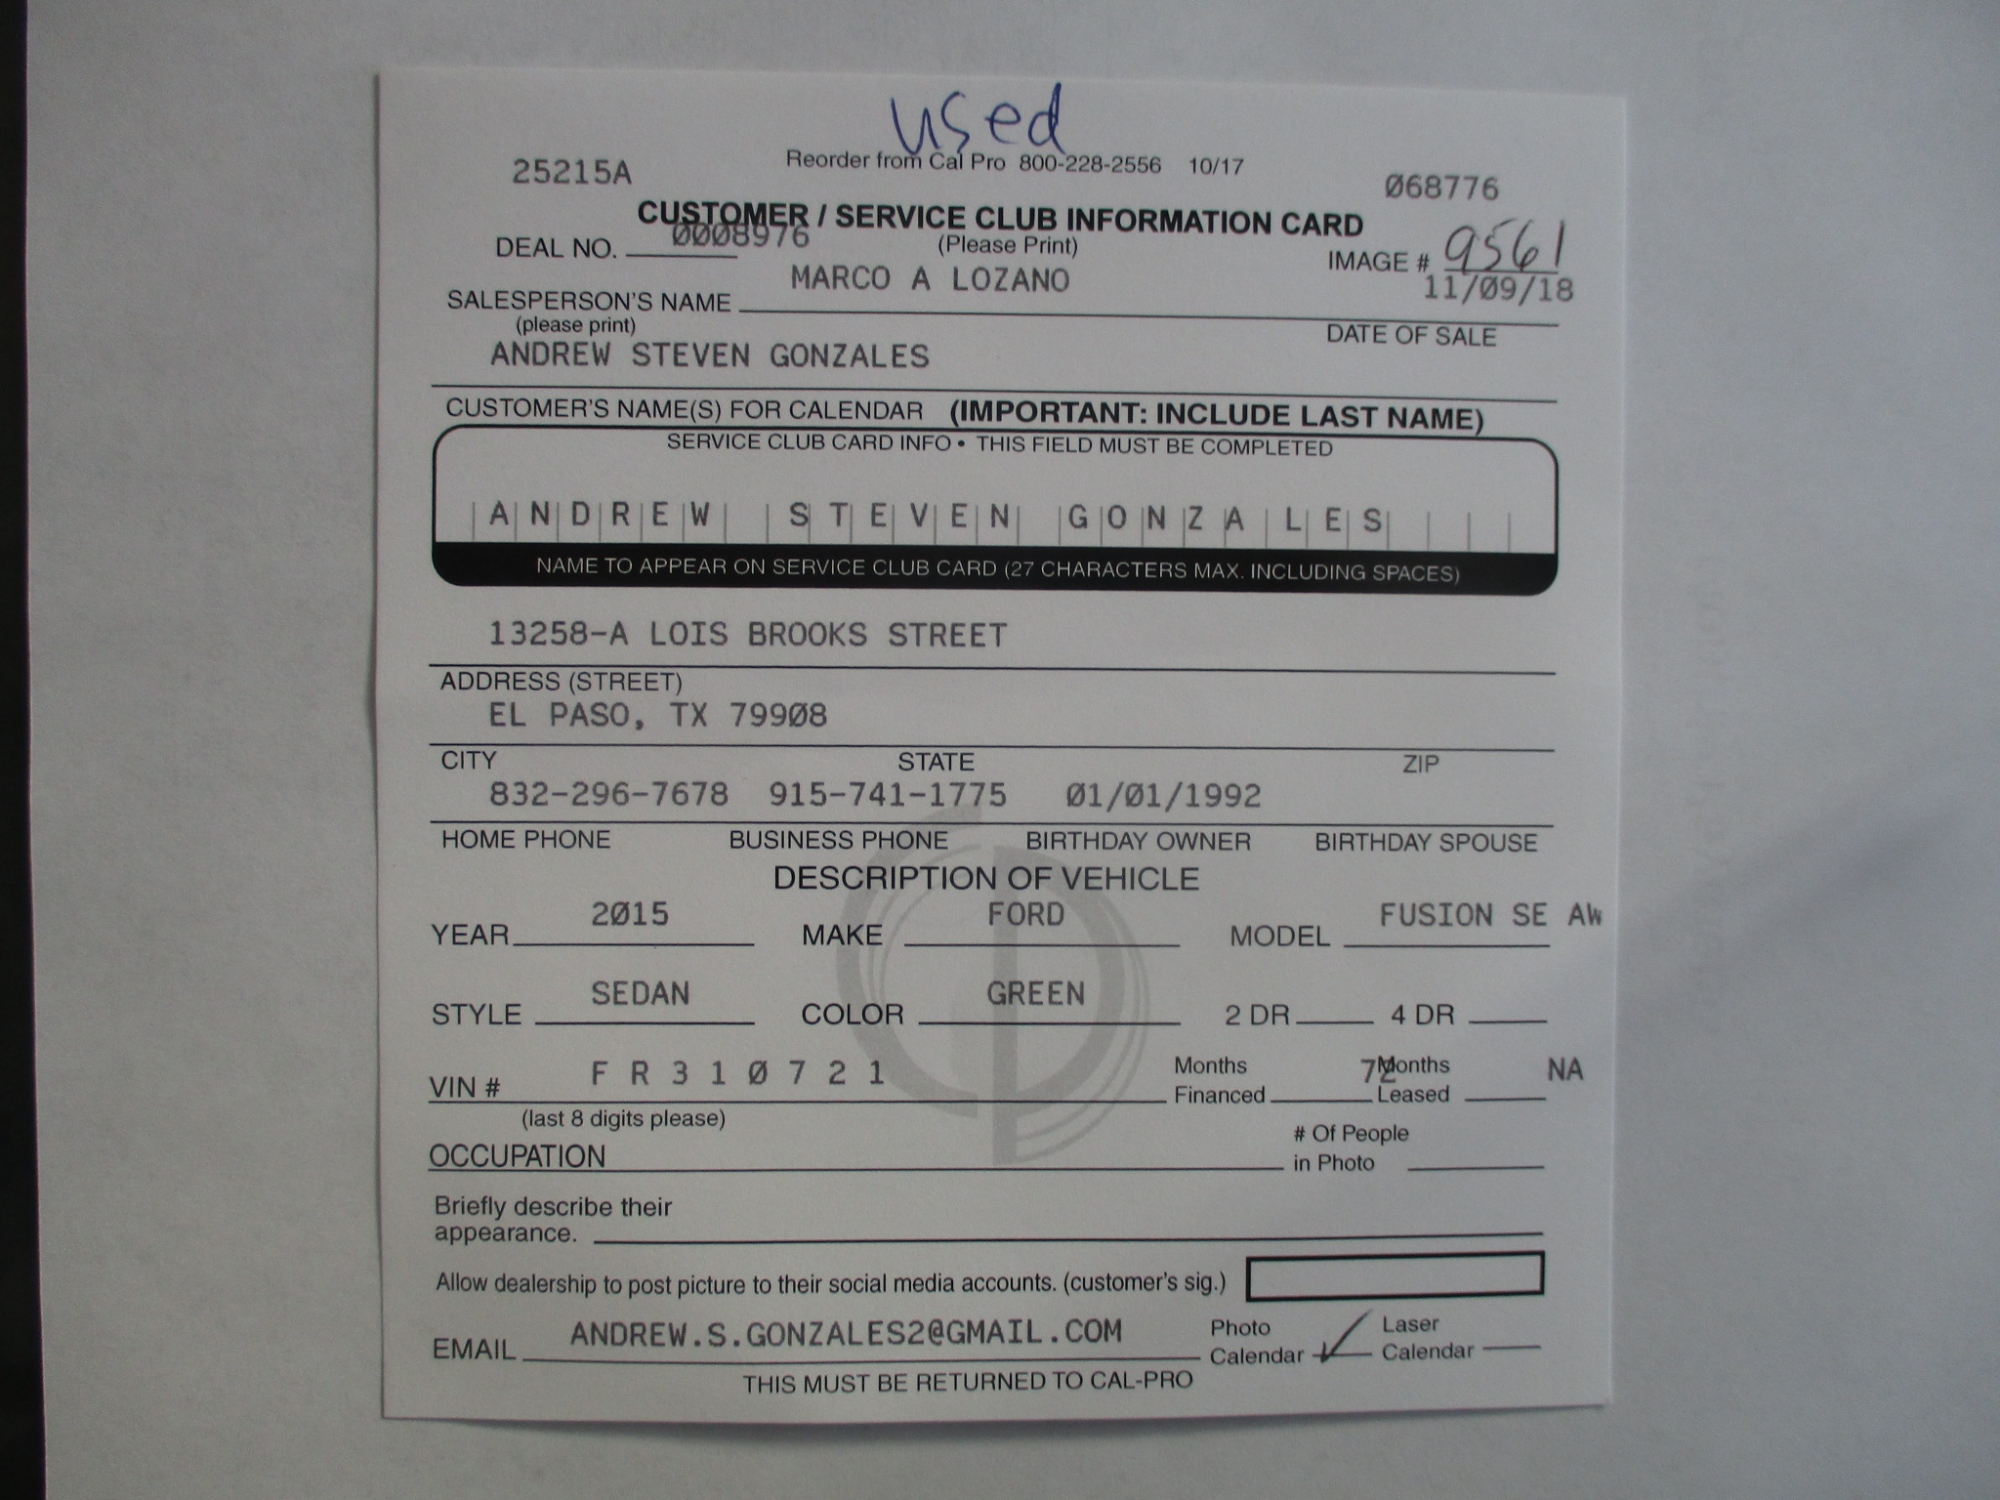 used
Reorder from Cal Pro 800-228-2556 10/17
25215A
068776
CUSTOMER / SERVICE CLUB INFORMATION CARD
DEAL NO. 0008976 (Please Print) IMAGE # 9561
SALESPERSON'S NAME MARCO A LOZANO 11/09/18
(please print) DATE OF SALE
ANDREW STEVEN GONZALES
CUSTOMER'S NAME(S) FOR CALENDAR (IMPORTANT: INCLUDE LAST NAME)
SERVICE CLUB CARD INFO • THIS FIELD MUST BE COMPLETED
ANDREW STEVEN GONZALES
NAME TO APPEAR ON SERVICE CLUB CARD (27 CHARACTERS MAX. INCLUDING SPACES)
13258-A LOIS BROOKS STREET
ADDRESS (STREET)
EL PASO, TX 79908
CITY STATE ZIP
832-296-7678 915-741-1775 01/01/1992
HOME PHONE BUSINESS PHONE BIRTHDAY OWNER BIRTHDAY SPOUSE
DESCRIPTION OF VEHICLE
YEAR 2015 MAKE FORD MODEL FUSION SE AW
STYLE SEDAN COLOR GREEN 2 DR 4 DR
VIN # F R 3 1 0 7 2 1 Months Financed 72 Months Leased NA
(last 8 digits please)
OCCUPATION # Of People in Photo
Briefly describe their
appearance.
Allow dealership to post picture to their social media accounts. (customer's sig.)
EMAIL ANDREW.S.GONZALES2@GMAIL.COM Photo Calendar ✓ Laser Calendar
THIS MUST BE RETURNED TO CAL-PRO